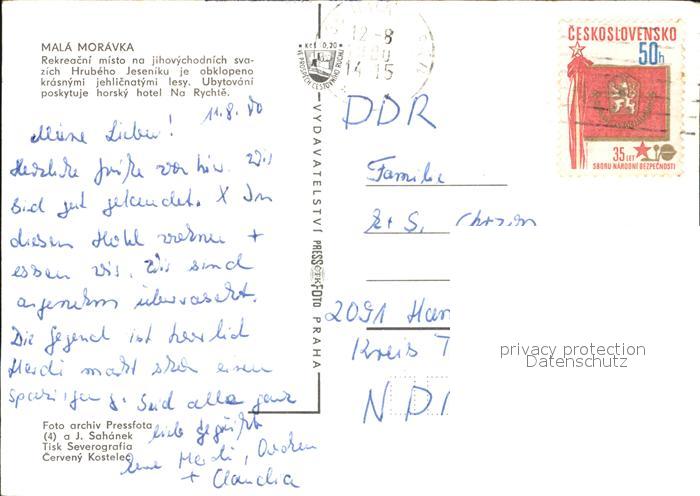 MALÁ MORÁVKA
Rekreační místo na jihovýchodních sva-
zích Hrubého Jeseníku je obklopeno
krásnými jehličnatými lesy. Ubytování
poskytuje horský hotel Na Rychtě.
11.8.80
Meine Lieben!
Herzliche Grüße von hier. Wir
sind gut gelandet. X In
diesem Hotel wohnen +
essen wir. Wir sind
angenehm überrascht.
Die Gegend ist herrlich
Heidi macht schon einen
Seid alle ganz
lieb gegrüßt
Heidi,
+ Claudia
Foto archiv Pressfota
(4) a J. Sahánek
Tisk Severografia
Červený Kostelec
VYDAVATELSTVÍ PRESSFOTO PRAHA
Kčs 0,20
VE PROSPĚCH CESTOVNÍHO RUCHU
12-8
14-15
ČESKOSLOVENSKO
50h
35 LET
SBORU NÁRODNÍ BEZPEČNOSTI
DDR
Familie
2091
Kreis T
privacy protection
Datenschutz